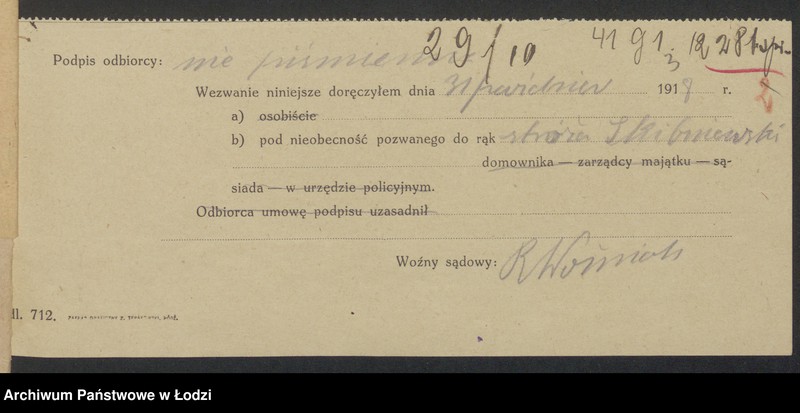 29/10 4191 12 28
3
Podpis odbiorcy: nie piśmienny
Wezwanie niniejsze doręczyłem dnia 1918 r.
2
a) osobiście
b) pod nieobecność pozwanego do rąk stróża Skibniewski
domownika — zarządcy majątku — są-
siada — w urzędzie policyjnym.
Odbiorca umowę podpisu uzasadnił
Woźny sądowy: R Woźniak
ll. 712.
Archiwum Państwowe w Łodzi